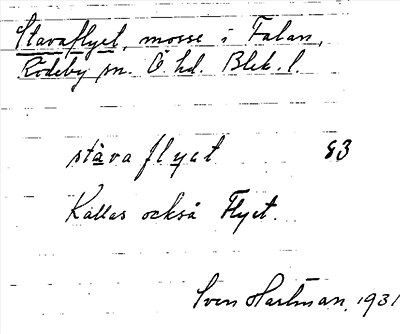 Stavaflyet, mosse i Falan,
Rödeby sn. Ö hd. Blek. l.
stava flyet 83
Kallas också Flyet.
Sven Hartman, 1931